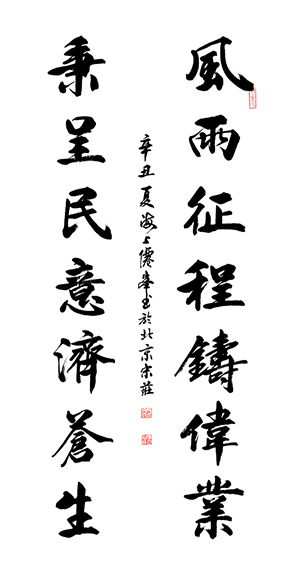 風雨征程鑄偉業
秉呈民意濟蒼生
辛丑夏海上儒峯書於北京宋莊